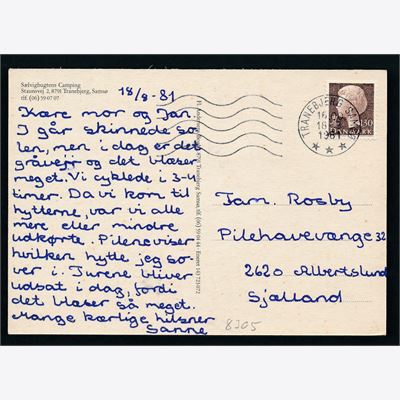 Sælvigbugtens Camping
Staunsvej 2, 8791 Tranebjerg, Samsø
tlf. (06) 59 07 07
18/8-81
Kære mor og Jan.
I går skinnede so-
len, men i dag er det
gråvejr og det blæser
meget. Vi cyklede i 3-4
timer. Da vi kom til
hytterne, var vi alle
mere eller mindre
udkørte. Pilene viser
hvilken hytte jeg so-
ver i. Turene bliver
udsat i dag, fordi
det blæser så meget.
Mange kærlige hilsner
Sanne
TRANEBJERG
1981
130
DANMARK
Fam. Rosby
Pilehavevænge 32
2620 Albertslund
Sjælland
8305